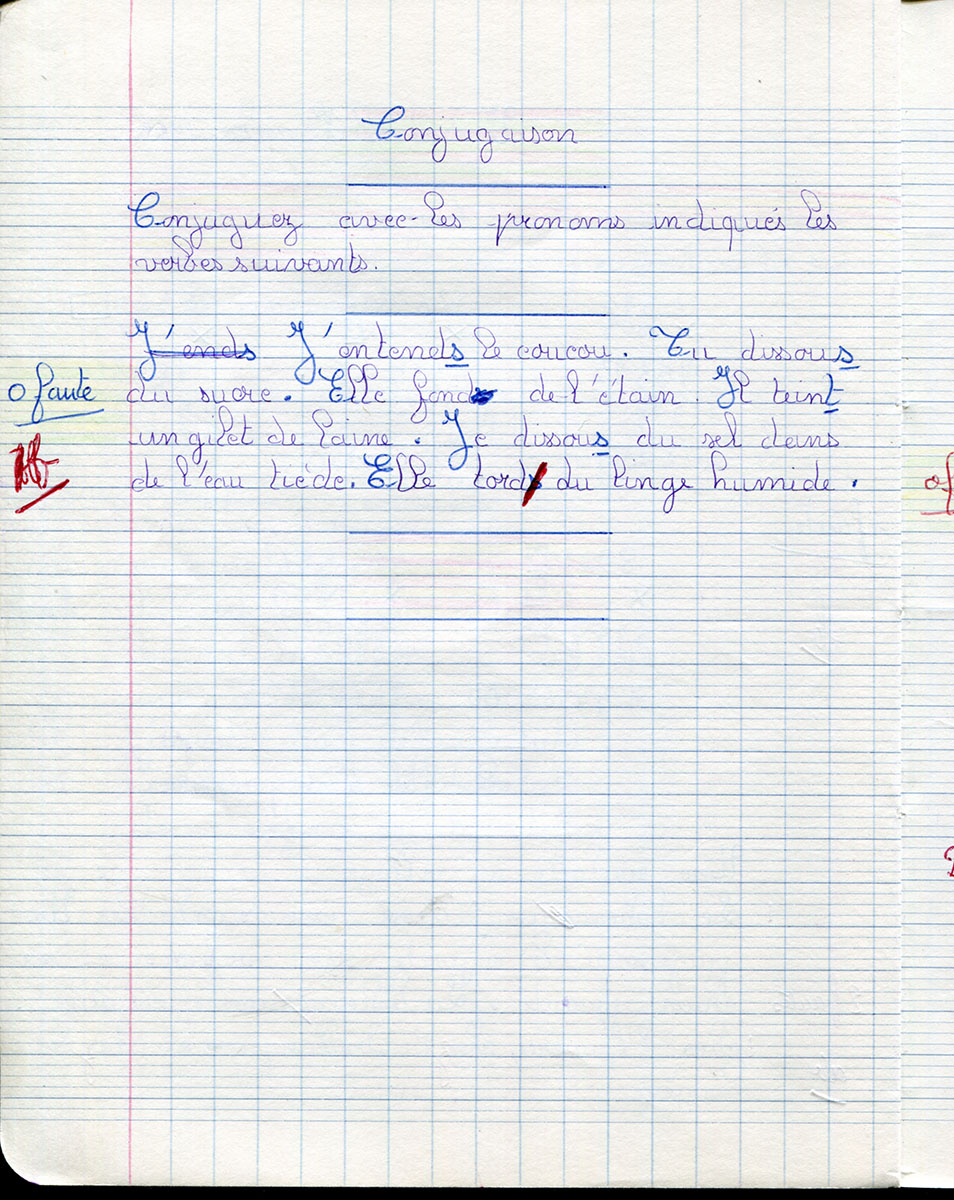 Conjugaison
Conjuguez avec les pronoms indiqués les
verbes suivants.
J'ends J'entends le coucou. Tu dissous
0 faute du sucre. Elle fond de l'étain. Il teint
un gilet de laine. Je dissous du sel dans
de l'eau tiède. Elle tords du linge humide.